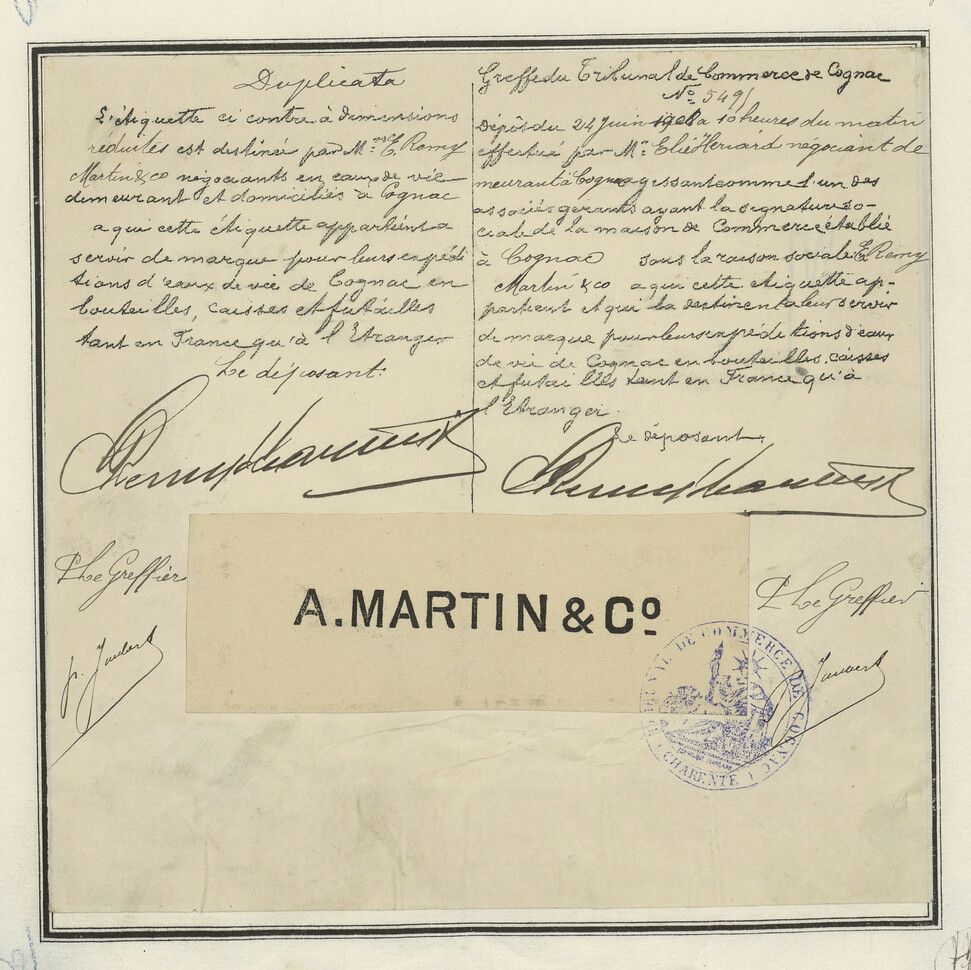 Duplicata
L'étiquette ci contre à dimensions
réduites est destinée par Mrs E. Remy
Martin & co négociants en eaux de vie
demeurant et domiciliés à Cognac
a qui cette étiquette appartient a
servir de marque pour leurs expédi
tions d'eaux de vie de Cognac en
bouteilles, caisses et futailles
tant en France qu'à l'Etranger
Le déposant:
Remy Martin
P Le Greffier
Greffe du Tribunal de Commerce de Cognac
No 5491
Dépôt du 24 Juin à 10 heures du matin
effectué par Mr Elie Hériard négociant de
meurant à Cognac agissant comme l'un des
associés gerants ayant la signature so-
ciale de la maison de Commerce établie
à Cognac sous la raison sociale E. Remy
Martin & co a qui cette étiquette ap-
partient et qui la destinent a leur servir
de marque pour leurs expéditions d'eaux
de vie de Cognac en bouteilles, caisses
et futailles tant en France qu'à
l'Etranger.
Le déposant:
Remy Martin
A. MARTIN & Co
P Le Greffier
TRIBUNAL DE COMMERCE DE COGNAC
CHARENTE